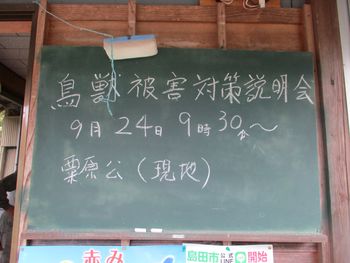 鳥獣被害対策説明会
9月24日9時30分〜
粟原公(現地)
赤み
島田市公式LINE開始